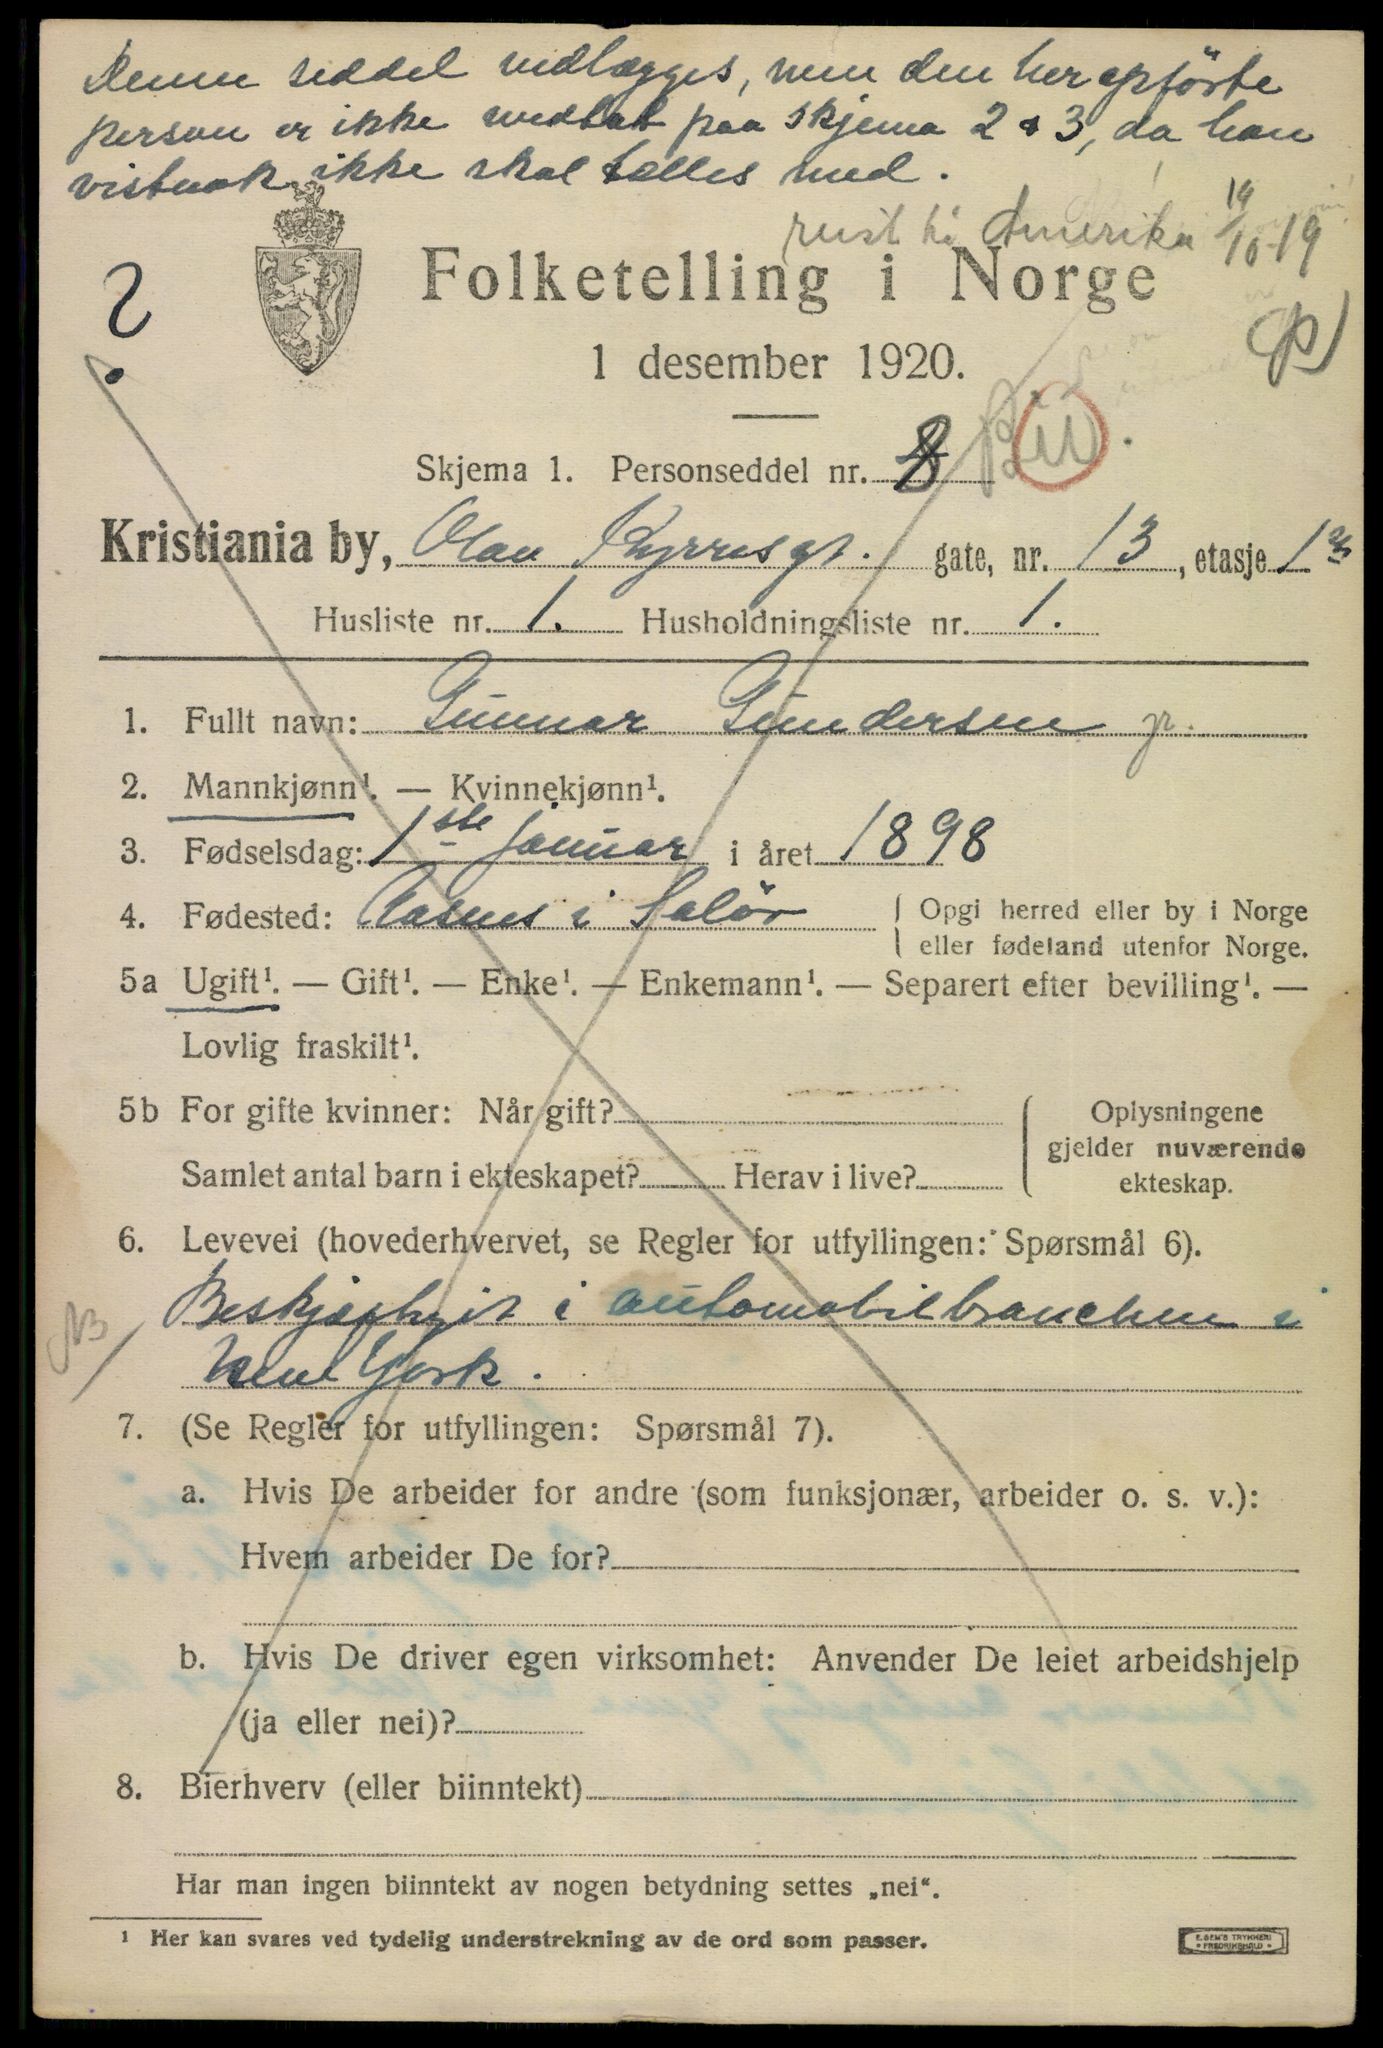 Denne seddel vedlægges, men den her opförte
person er ikke medtat paa skjema 2 & 3, da han
vistnok ikke skal tælles med.
reist til Amerika 14/10-19
?
Folketelling i Norge
1 desember 1920.
Skjema 1. Personseddel nr. 8
Kristiania by, Olav Kyrres gt. gate, nr. 13, etasje 1
Husliste nr. 1. Husholdningsliste nr. 1.
1. Fullt navn: Gunnar Gundersen jr.
2. Mannkjønn¹. — Kvinnekjønn¹.
3. Fødselsdag: 1ste januar i året 1898
4. Fødested: Aasnes i Solör { Opgi herred eller by i Norge
{ eller fødeland utenfor Norge.
5a Ugift¹. — Gift¹. — Enke¹. — Enkemann¹. — Separert efter bevilling¹. —
Lovlig fraskilt¹.
5b For gifte kvinner: Når gift? { Oplysningene
gjelder nuværende
Samlet antal barn i ekteskapet? Herav i live? ekteskap.
6. Levevei (hovederhvervet, se Regler for utfyllingen: Spørsmål 6).
NB Beskjæftiget i automobilbranchen i
New York.
7. (Se Regler for utfyllingen: Spørsmål 7).
a. Hvis De arbeider for andre (som funksjonær, arbeider o. s. v.):
Hvem arbeider De for?
b. Hvis De driver egen virksomhet: Anvender De leiet arbeidshjelp
(ja eller nei)?
8. Bierhverv (eller biinntekt)
Har man ingen biinntekt av nogen betydning settes „nei“.
¹ Her kan svares ved tydelig understrekning av de ord som passer.
E. SEM'S TRYKKERI
FREDRIKSHALD